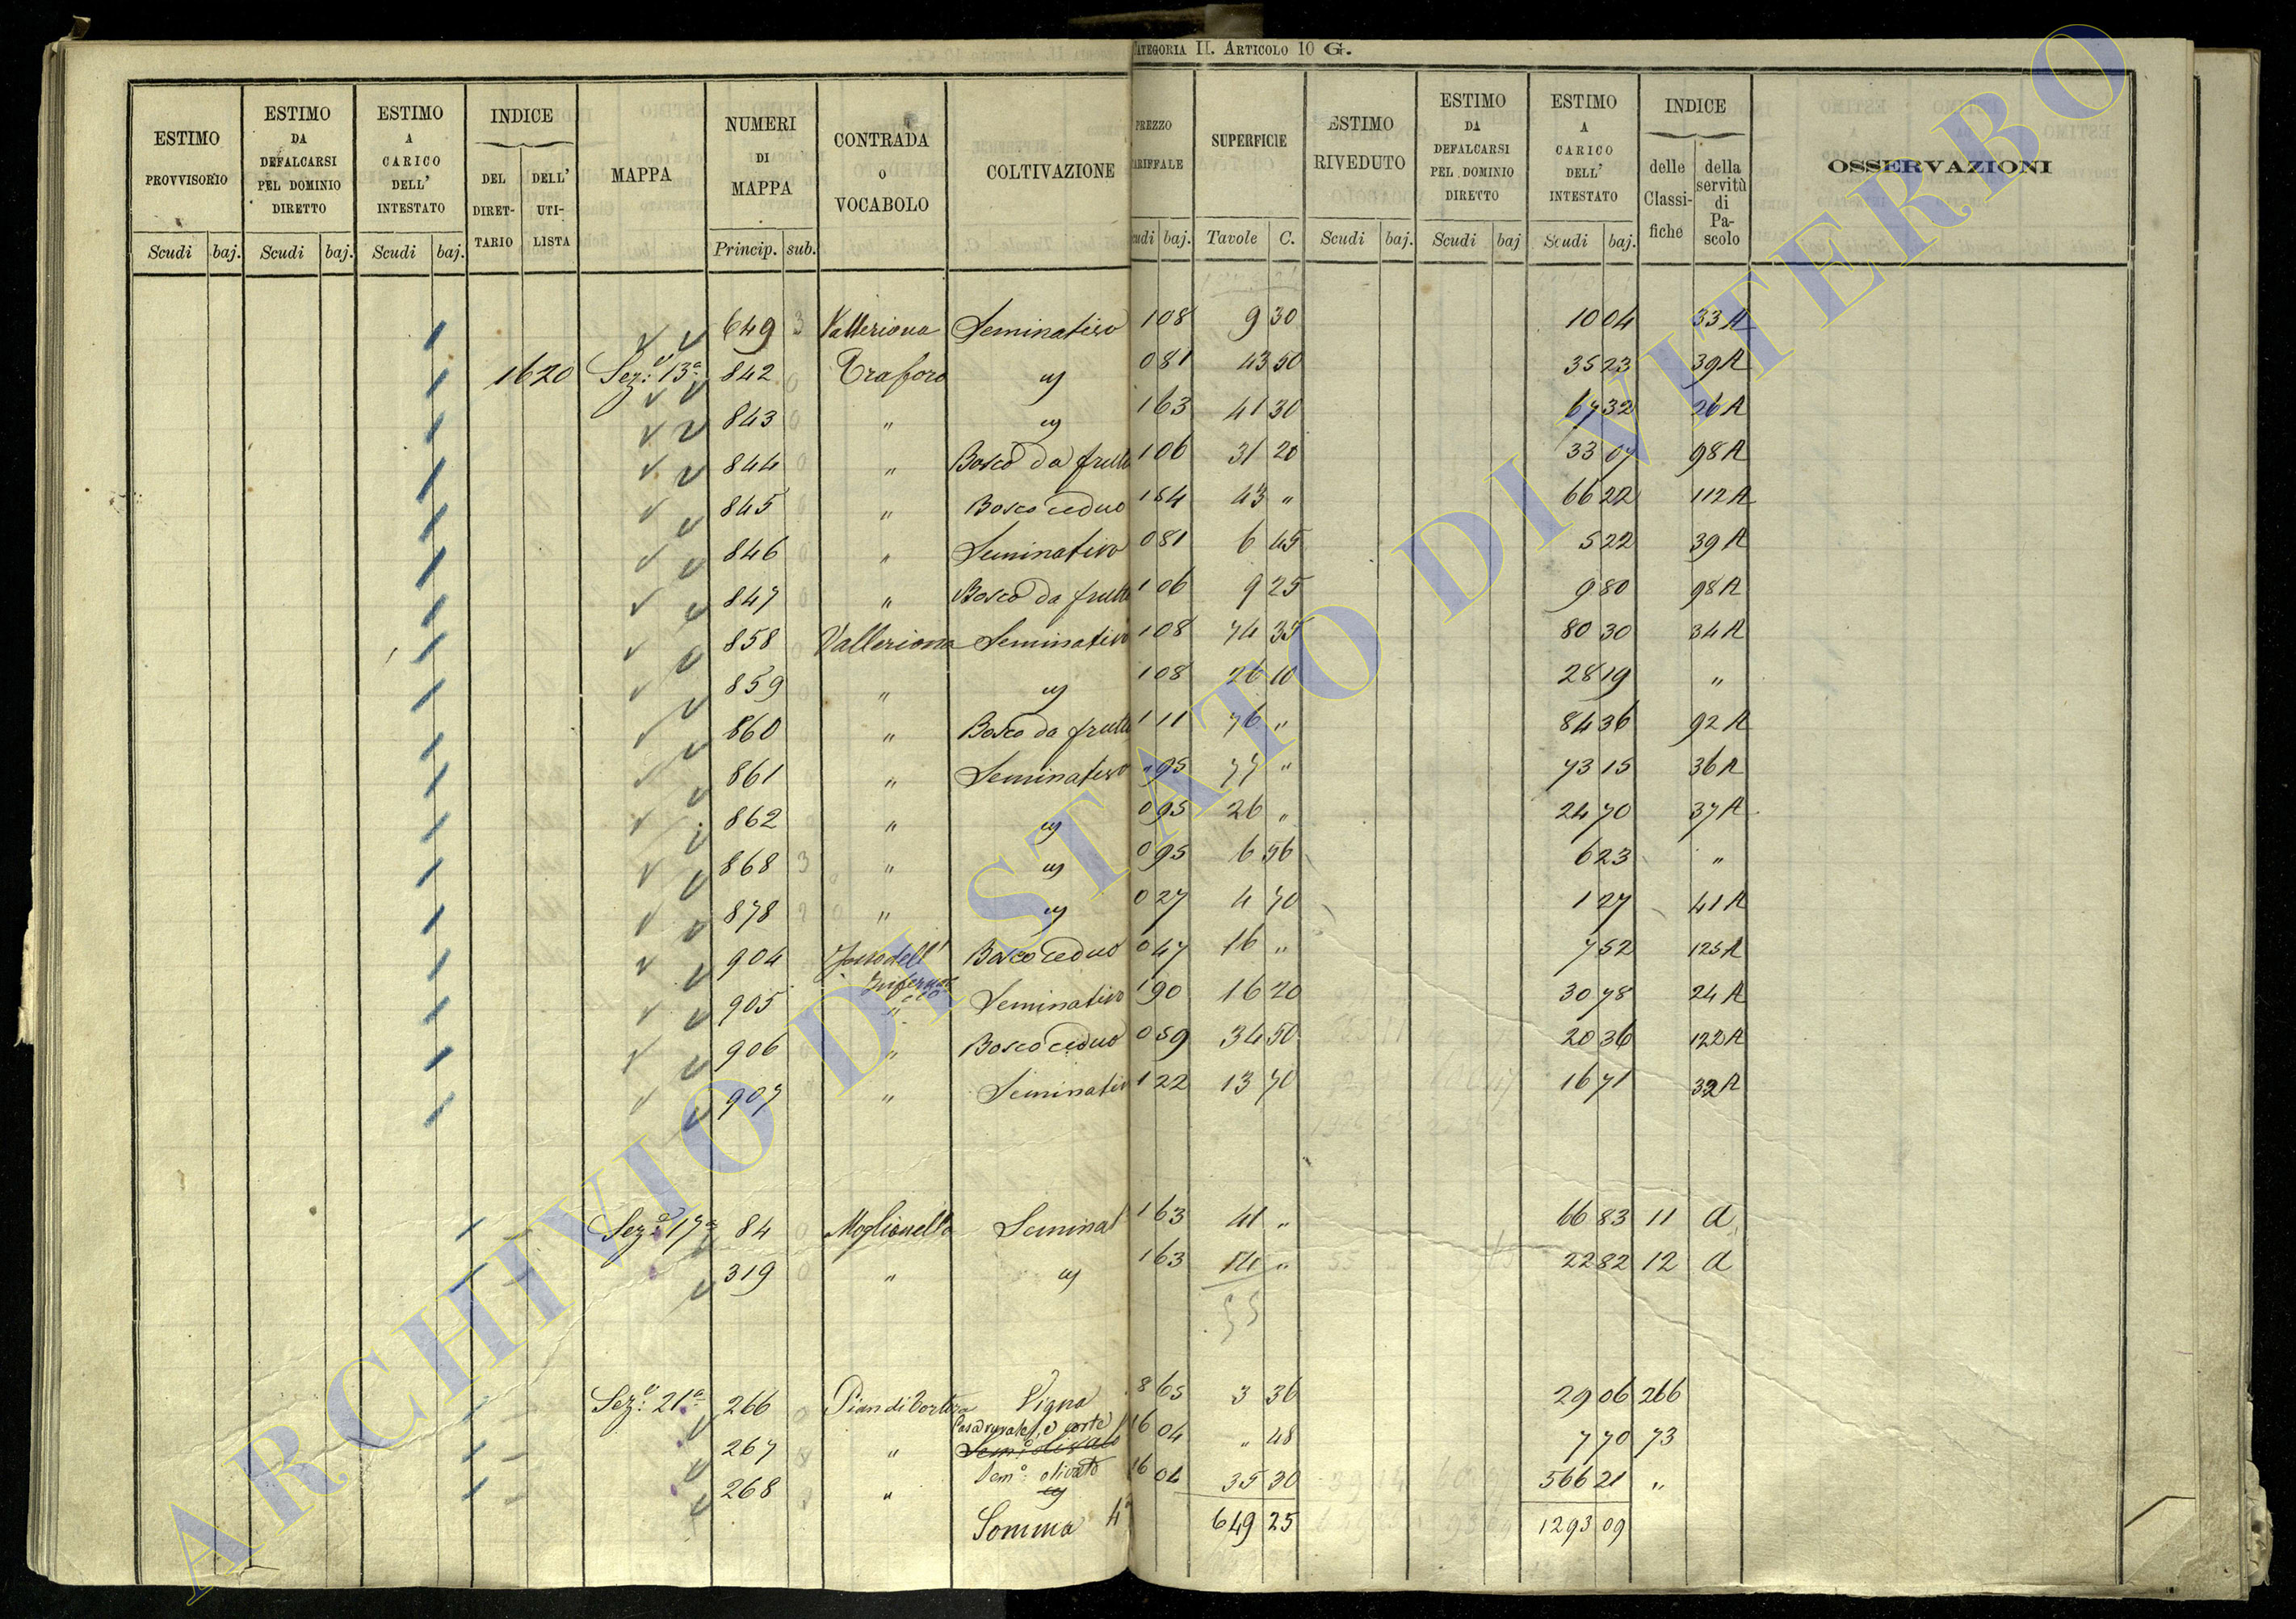 CATEGORIA II. ARTICOLO 10 G.
ESTIMO PROVVISORIO | ESTIMO DA DEFALCARSI PEL DOMINIO DIRETTO | ESTIMO A CARICO DELL' INTESTATO | INDICE DEL DIRET-TARIO | DELL' UTI-LISTA | MAPPA | NUMERI DI MAPPA | CONTRADA O VOCABOLO | COLTIVAZIONE | PREZZO ARIFFALE | SUPERFICIE | ESTIMO RIVEDUTO | ESTIMO DA DEFALCARSI PEL DOMINIO DIRETTO | ESTIMO A CARICO DELL' INTESTATO | INDICE delle Classi-fiche | della servitù di Pa-scolo | OSSERVAZIONI
Scudi baj. Scudi baj. Scudi baj. Princip. sub. udi baj. Tavole C. Scudi baj. Scudi baj Scudi baj.
649 3 Valleriona Seminativo 1 08 9 30 10 04 33 A
1620 Sez: 13a 842 0 Traforo " 0 81 43 50 35 23 39 A
843 0 " " 1 63 41 30 67 32 26 A
844 0 " Bosco da frutto 1 06 31 20 33 07 98 A
845 " Bosco ceduo 1 54 43 " 66 22 112 A
846 " Seminativo 0 81 6 45 5 22 39 A
847 " Bosco da frutto 1 06 9 25 9 80 98 A
858 Valleriona Seminativo 1 08 74 35 80 30 34 A
859 " " 1 08 26 10 28 19 "
860 " Bosco da frutto 1 11 76 " 84 36 92 A
861 " Seminativo " 95 77 " 73 15 36 A
862 " " 0 95 26 " 24 70 37 A
868 3 " " 0 95 6 56 6 23 "
878 2 " " 0 27 4 70 1 27 41 A
904 Fosso dell' Infernaccio Bosco ceduo 0 47 16 " 7 52 125 A
905 " Seminativo 1 90 16 20 30 78 24 A
906 " Bosco ceduo 0 59 34 50 20 36 122 A
907 " Seminativo 1 22 13 70 16 71 32 A
Sez: 17a 84 0 Moglionella Seminat 1 63 41 " 66 83 11 A
319 0 " " 1 63 14 " 22 82 12 A
55
Sez: 21a 266 0 Vigna 8 65 3 36 29 06 266
267 " Casa rurale e corte Semo: olivato 16 04 " 48 7 70 73
268 " Semo: olivato 16 04 35 30 566 21 "
Somma 4a 649 25 1293 09
ARCHIVIO DI STATO DI VITERBO